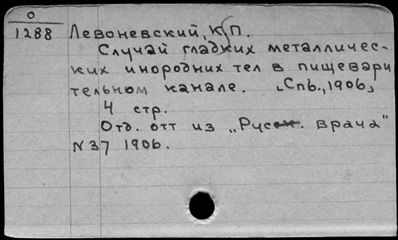 О
1288 Левоневский, К П.
Случай гладких металличес-
ких инородних тел в пищевари
тельном канале. [Спб., 1906]
4 стр.
Отд. отт из „Русск. врача"
N 37 1906.